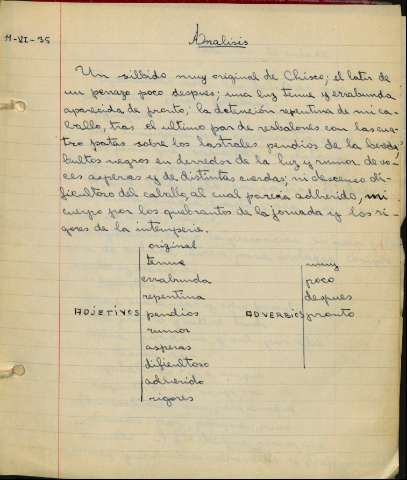 11-VI-35
Analisis
Un silbido muy original de Chisco; el latir de
un perrazo poco despues; una luz tenue y errabunda
aparecida de pronto; la detención repentina de mi ca-
ballo, tras el ultimo par de resbalones con las cua-
tro patas sobre los lastrales pendios de la
bultos negros en derredor de la luz y rumor de vo-
ces asperas y de distintas cuerdas; mi descenso di-
ficultoso del caballo, al cual parecia adherido, mi
cuerpo por los quebrantos de la jornada y los ri-
gores de la intemperie.
ADJETIVOS
original
tenue
errabunda
repentina
pendios
rumor
asperas
dificultoso
adherido
rigores
ADVERBIOS
muy
poco
despues
pronto